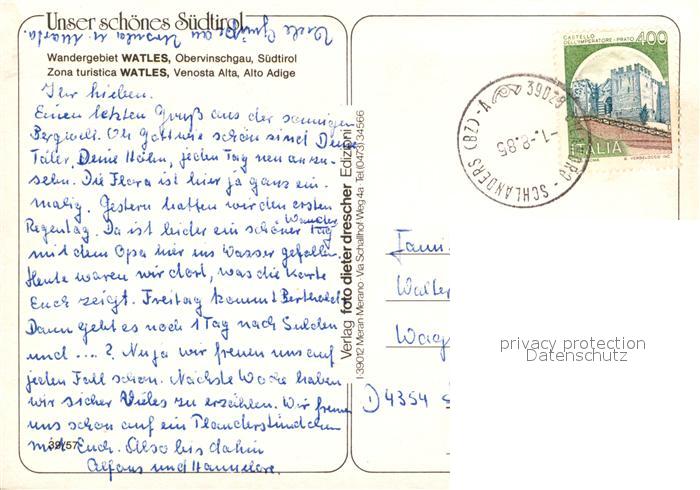 Unser schönes Südtirol
Viele Grüße an Ursula u. Marta.
Wandergebiet WATLES, Obervinschgau, Südtirol
Zona turistica WATLES, Venosta Alta, Alto Adige
Ihr Lieben.
Einen letzten Gruß aus der sonnigen
Bergwelt. Oh Gott wie schön sind Deine
Täler, Deine Höhn, jeden Tag neu anzu-
sehn. Die Flora ist hier ja ganz ein-
malig. Gestern hatten wir den ersten
Regentag. Da ist leider ein schöner Wander Tag
mit dem Opa hier ins Wasser gefallen.
Heute waren wir dort, was die Karte
Euch zeigt. Freitag kommt Berthold.
Dann geht es noch 1 Tag nach Sulden
und .... ? Nu ja wir freuen uns auf
jeden Fall schon. Nächste Woche haben
wir sicher Vieles zu erzählen. Wir freuen
uns schon auf ein Plauderstündchen
mit Euch. Also bis dahin
Alfons und Hannelore.
39/57
Verlag foto dieter drescher Edizioni
I-39012 Meran Merano - Via Schallhof Weg 4a Tel (0473) 34566
CASTELLO
DELL'IMPERATORE - PRATO
400
ITALIA
39028
SCHLANDERS (BZ) - A
-1.-8.85
- SCHLANDERS
Fam.
Walter
Wag
D 4354
privacy protection
Datenschutz